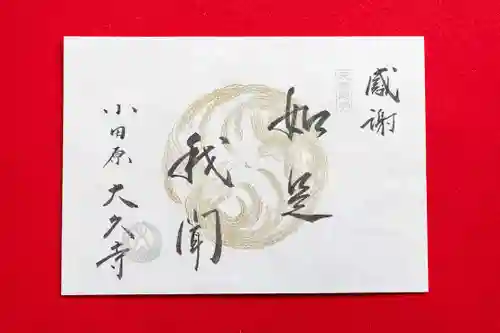 感謝
如是
我聞
小田原 大久寺